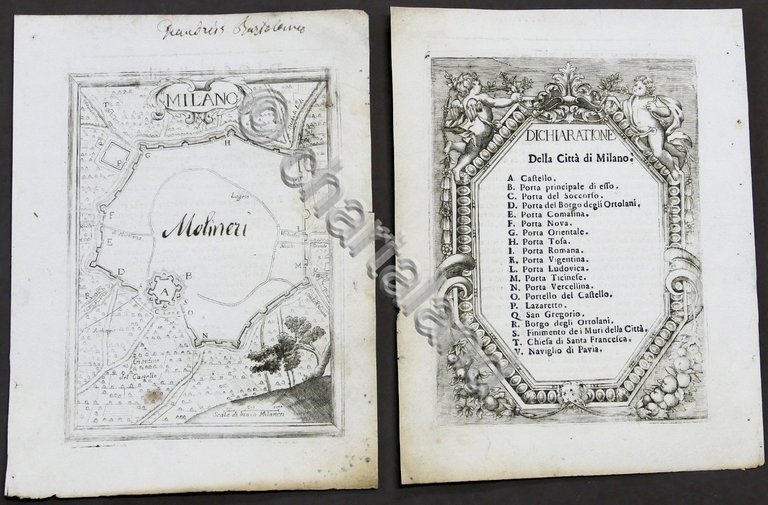 Bartolomeo
MILANO
T
G
H
F
E
Molineri
I
D
B
A
S
O
N
Giardino
Del Castello
Scala di bracia Milanesi
DICHIARATIONE
Della Città di Milano.
A. Castello.
B. Porta principale di esso.
C. Porta del Soccorso.
D. Porta del Borgo degli Ortolani.
E. Porta Comasina.
F. Porta Nova.
G. Porta Orientale.
H. Porta Tosa.
I. Porta Romana.
K. Porta Vigentina.
L. Porta Ludovica.
M. Porta Ticinese.
N. Porta Vercellina.
O. Portello del Castello.
P. Lazaretto.
Q. San Gregorio.
R. Borgo degli Ortolani.
S. Finimento dei Muri della Città.
T. Chiesa di Santa Francesca.
V. Naviglio di Pavia.
© chartalo